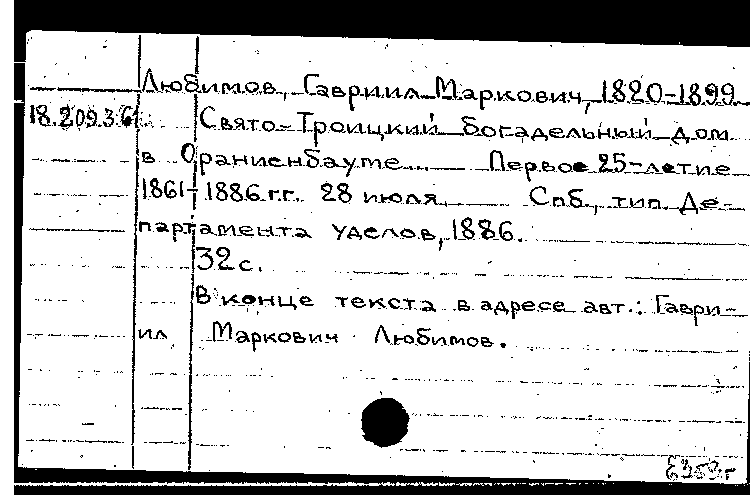 Любимов, Гавриил Маркович, 1820-1899
18.209.3.6 Свято-Троицкий богадельный дом
в Ораниенбауме... Первое 25-летие
1861-1886 г.г. 28 июля Спб., тип. Де-
партамента уделов, 1886.
32 с.
В конце текста в адресе авт.: Гаври-
ил Маркович Любимов.